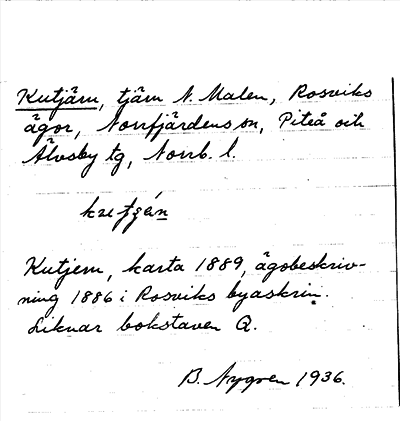 Kutjärn, tjärn N. Malen, Rosviks
ägor, Norrfjärdens sn, Piteå och
Älvsby tg, Norrb. l.
Kutjern, karta 1889, ägobeskriv-
ning 1886 i Rosviks byaskrin.
Liknar bokstaven Q.
B. Nygren 1936.